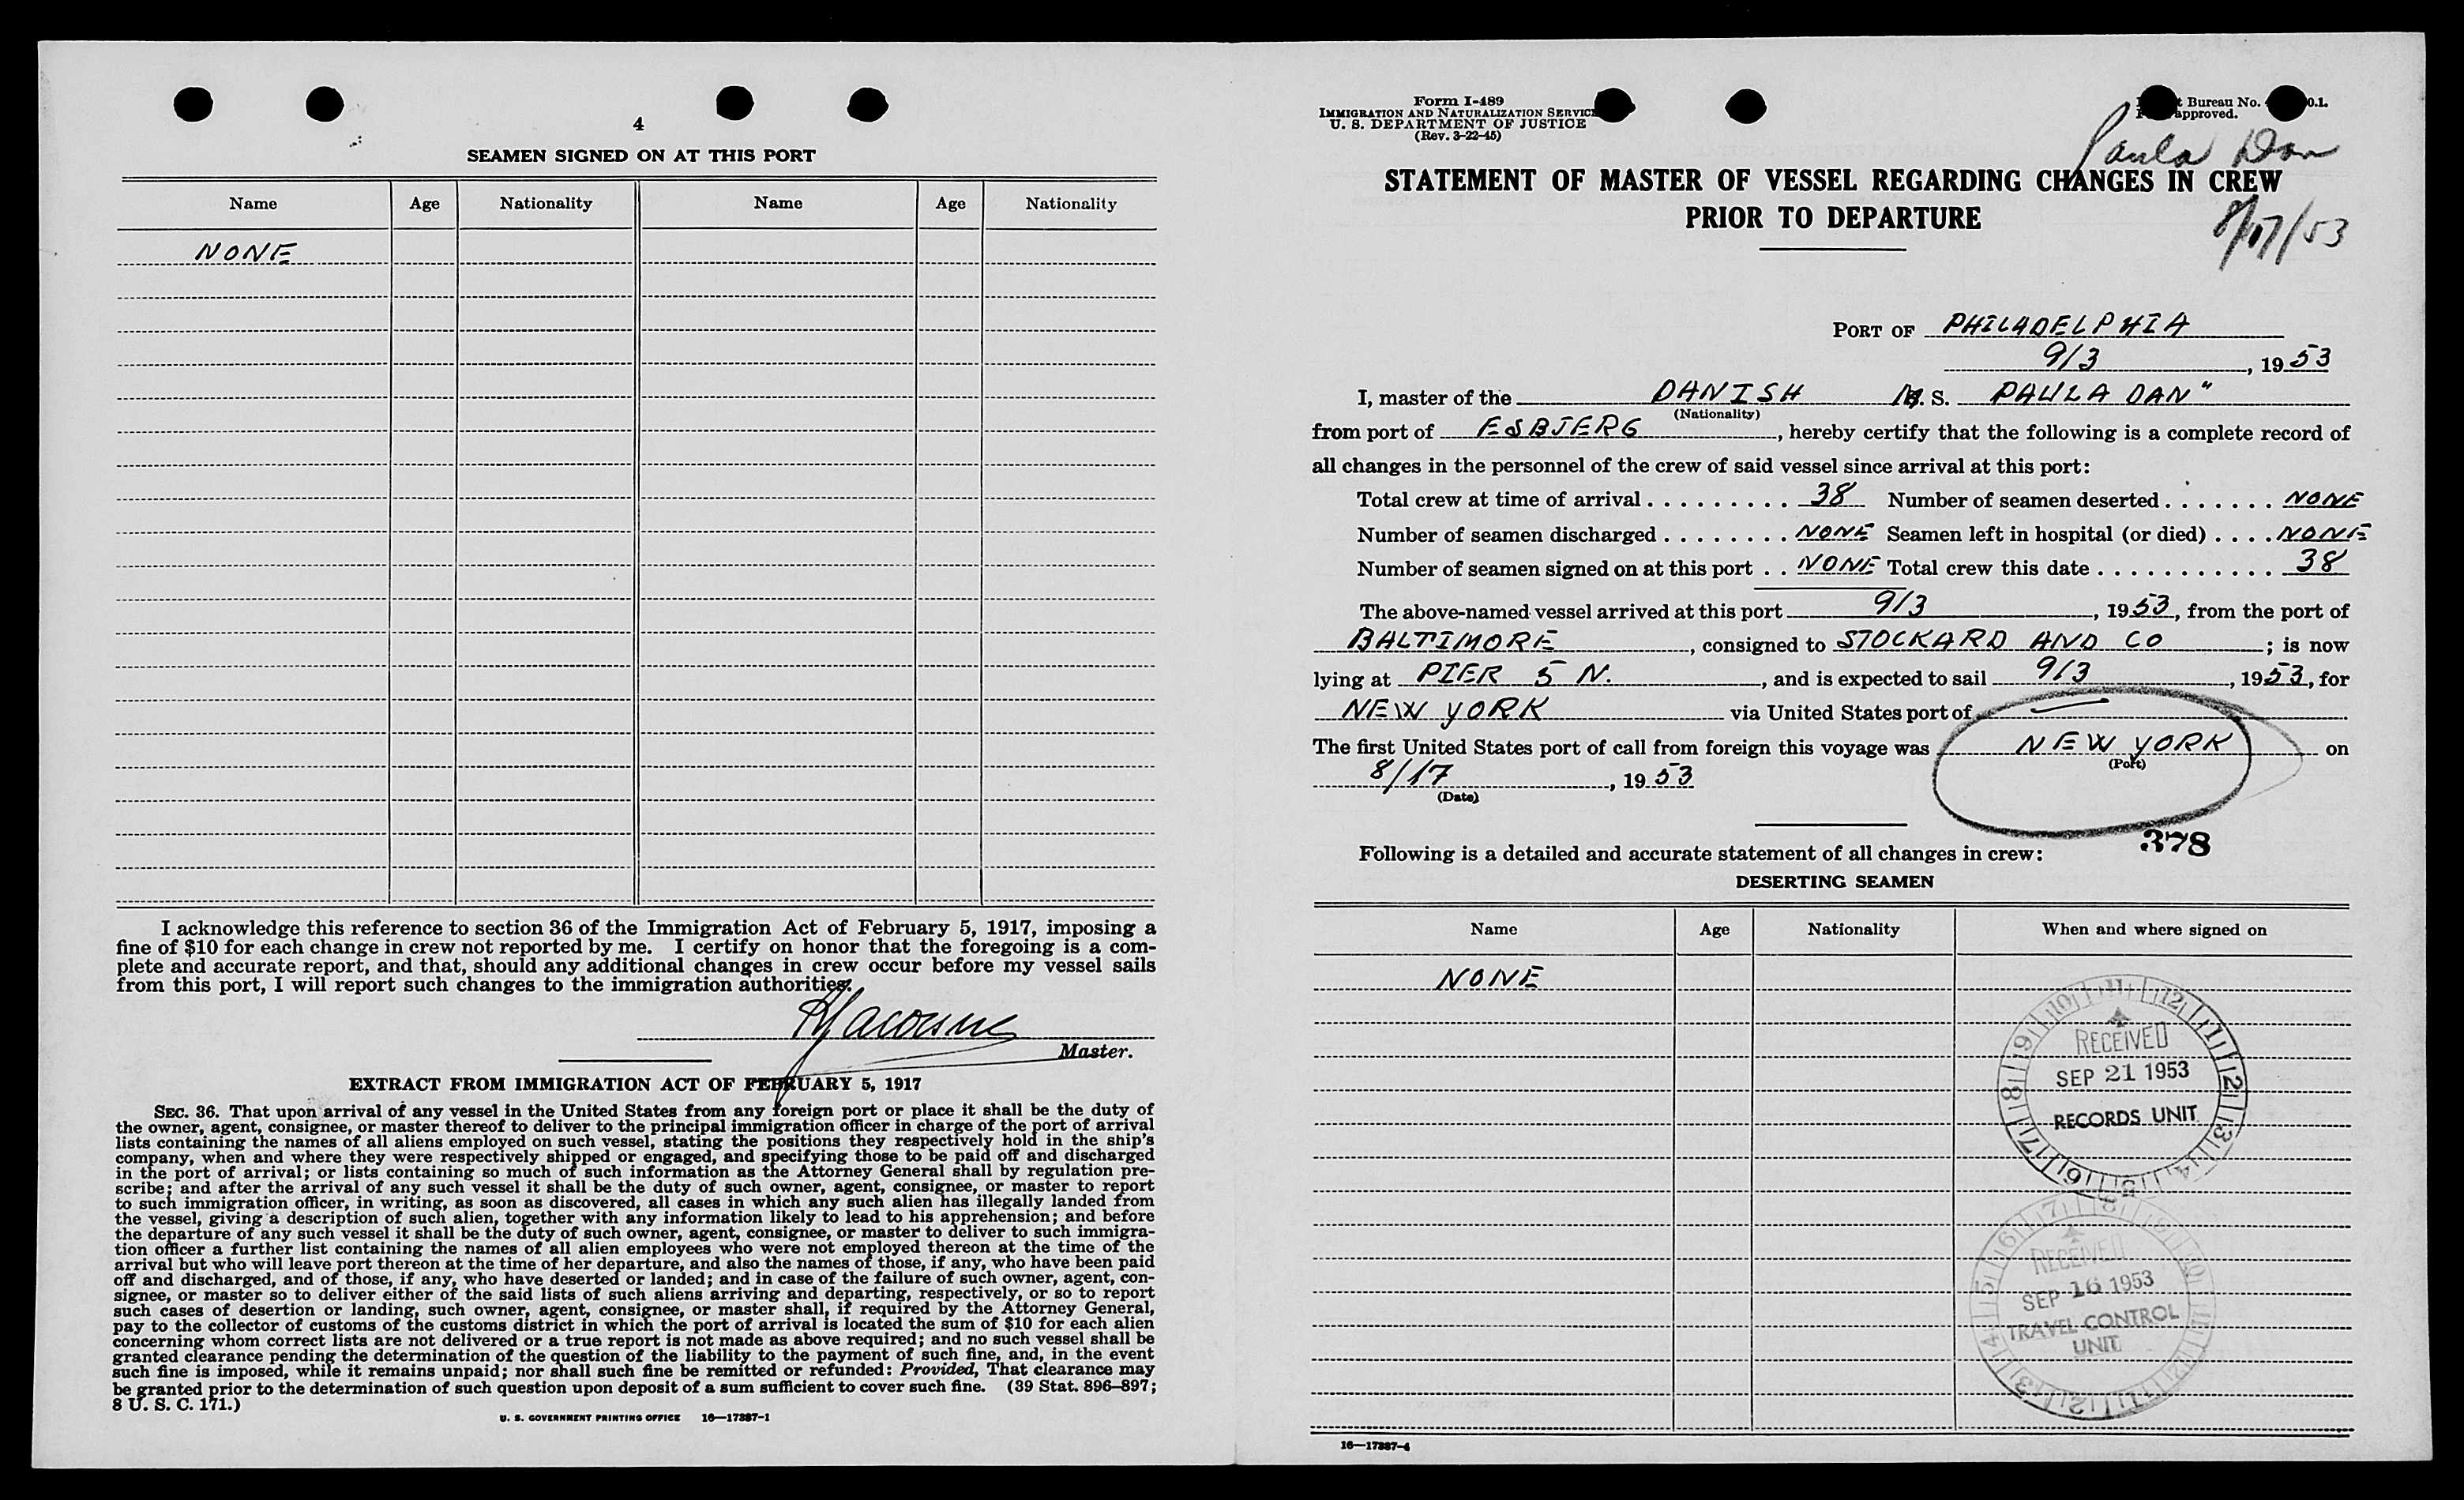 4
SEAMEN SIGNED ON AT THIS PORT
Name Age Nationality Name Age Nationality
NONE
I acknowledge this reference to section 36 of the Immigration Act of February 5, 1917, imposing a
fine of $10 for each change in crew not reported by me. I certify on honor that the foregoing is a com-
plete and accurate report, and that, should any additional changes in crew occur before my vessel sails
from this port, I will report such changes to the immigration authorities.
Master.
EXTRACT FROM IMMIGRATION ACT OF FEBRUARY 5, 1917
SEC. 36. That upon arrival of any vessel in the United States from any foreign port or place it shall be the duty of
the owner, agent, consignee, or master thereof to deliver to the principal immigration officer in charge of the port of arrival
lists containing the names of all aliens employed on such vessel, stating the positions they respectively hold in the ship's
company, when and where they were respectively shipped or engaged, and specifying those to be paid off and discharged
in the port of arrival; or lists containing so much of such information as the Attorney General shall by regulation pre-
scribe; and after the arrival of any such vessel it shall be the duty of such owner, agent, consignee, or master to report
to such immigration officer, in writing, as soon as discovered, all cases in which any such alien has illegally landed from
the vessel, giving a description of such alien, together with any information likely to lead to his apprehension; and before
the departure of any such vessel it shall be the duty of such owner, agent, consignee, or master to deliver to such immigra-
tion officer a further list containing the names of all alien employees who were not employed thereon at the time of the
arrival but who will leave port thereon at the time of her departure, and also the names of those, if any, who have been paid
off and discharged, and of those, if any, who have deserted or landed; and in case of the failure of such owner, agent, con-
signee, or master so to deliver either of the said lists of such aliens arriving and departing, respectively, or so to report
such cases of desertion or landing, such owner, agent, consignee, or master shall, if required by the Attorney General,
pay to the collector of customs of the customs district in which the port of arrival is located the sum of $10 for each alien
concerning whom correct lists are not delivered or a true report is not made as above required; and no such vessel shall be
granted clearance pending the determination of the question of the liability to the payment of such fine, and, in the event
such fine is imposed, while it remains unpaid; nor shall such fine be remitted or refunded: Provided, That clearance may
be granted prior to the determination of such question upon deposit of a sum sufficient to cover such fine. (39 Stat. 896–897;
8 U. S. C. 171.)
U. S. GOVERNMENT PRINTING OFFICE 16—17387-1
Form I-489
IMMIGRATION AND NATURALIZATION SERVICE
U. S. DEPARTMENT OF JUSTICE
(Rev. 3-22-45)
Bureau No. 0.1.
approved.
Paula Dan
STATEMENT OF MASTER OF VESSEL REGARDING CHANGES IN CREW
PRIOR TO DEPARTURE
8/17/53
PORT OF PHILADELPHIA
9/3, 1953
I, master of the DANISH M. S. PAULA DAN"
(Nationality)
from port of ESBJERG, hereby certify that the following is a complete record of
all changes in the personnel of the crew of said vessel since arrival at this port:
Total crew at time of arrival . . . . . . . . . 38 Number of seamen deserted . . . . . . . NONE
Number of seamen discharged . . . . . . . . NONE Seamen left in hospital (or died) . . . . NONE
Number of seamen signed on at this port . . NONE Total crew this date . . . . . . . . . . . 38
The above-named vessel arrived at this port 9/3, 1953, from the port of
BALTIMORE, consigned to STOCKARD AND CO; is now
lying at PIER 5 N., and is expected to sail 9/3, 1953, for
NEW YORK via United States port of —
The first United States port of call from foreign this voyage was NEW YORK on
(Port)
8/17, 1953
(Date)
378
Following is a detailed and accurate statement of all changes in crew:
DESERTING SEAMEN
Name Age Nationality When and where signed on
NONE
RECEIVED
SEP 21 1953
RECORDS UNIT
RECEIVED
SEP 16 1953
TRAVEL CONTROL
UNIT
16—17387-4